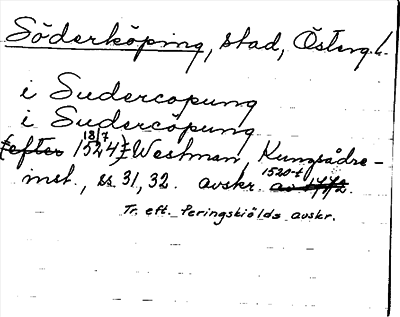 Söderköping, stad, Österg. l.
i Sudercopung
i Sudercöpung
(efter 18/7 1524) Westman, Kungsådre-
inst., ss. 31, 32. avskr. 1520-t.
Tr. eft. Peringskiölds avskr.